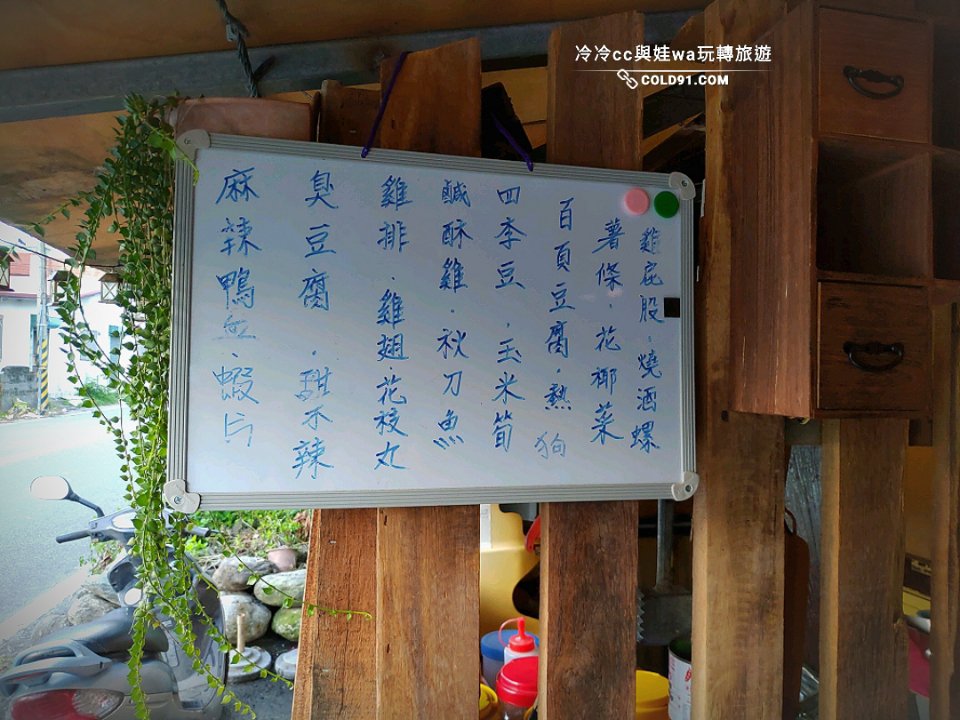 冷冷cc與娃wa玩轉旅遊
COLD91.COM
雞屁股.燒酒螺
薯條.花椰菜
百頁豆腐.熱狗
四李豆.玉米筍
鹹酥雞.秋刀魚
雞排.雞翅.花枝丸
臭豆腐.甜不辣
麻辣鴨血.蝦片